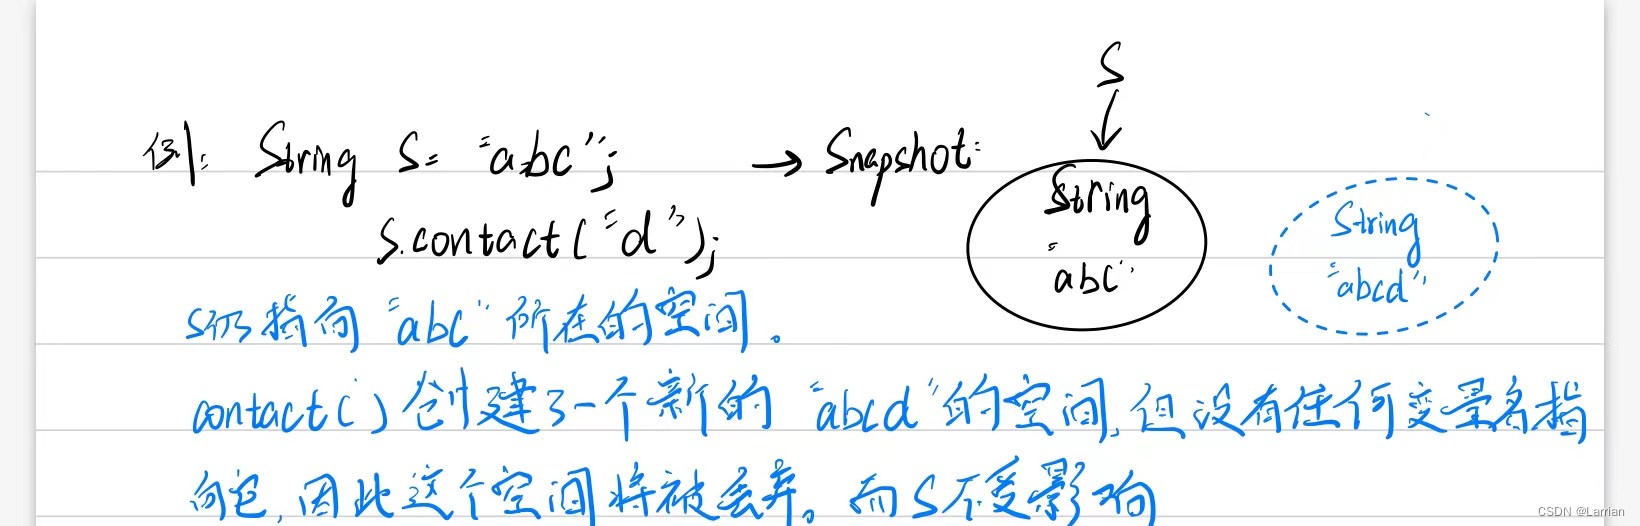 S
例: String S= "abc"; → Snapshot:
String
"abc"
String
"abcd"
S.contact("d");
S仍指向"abc"所在的空间。
contact()创建了一个新的"abcd"的空间,但没有任何变量名指
向它,因此这个空间将被丢弃。而S不受影响
CSDN @Larrian